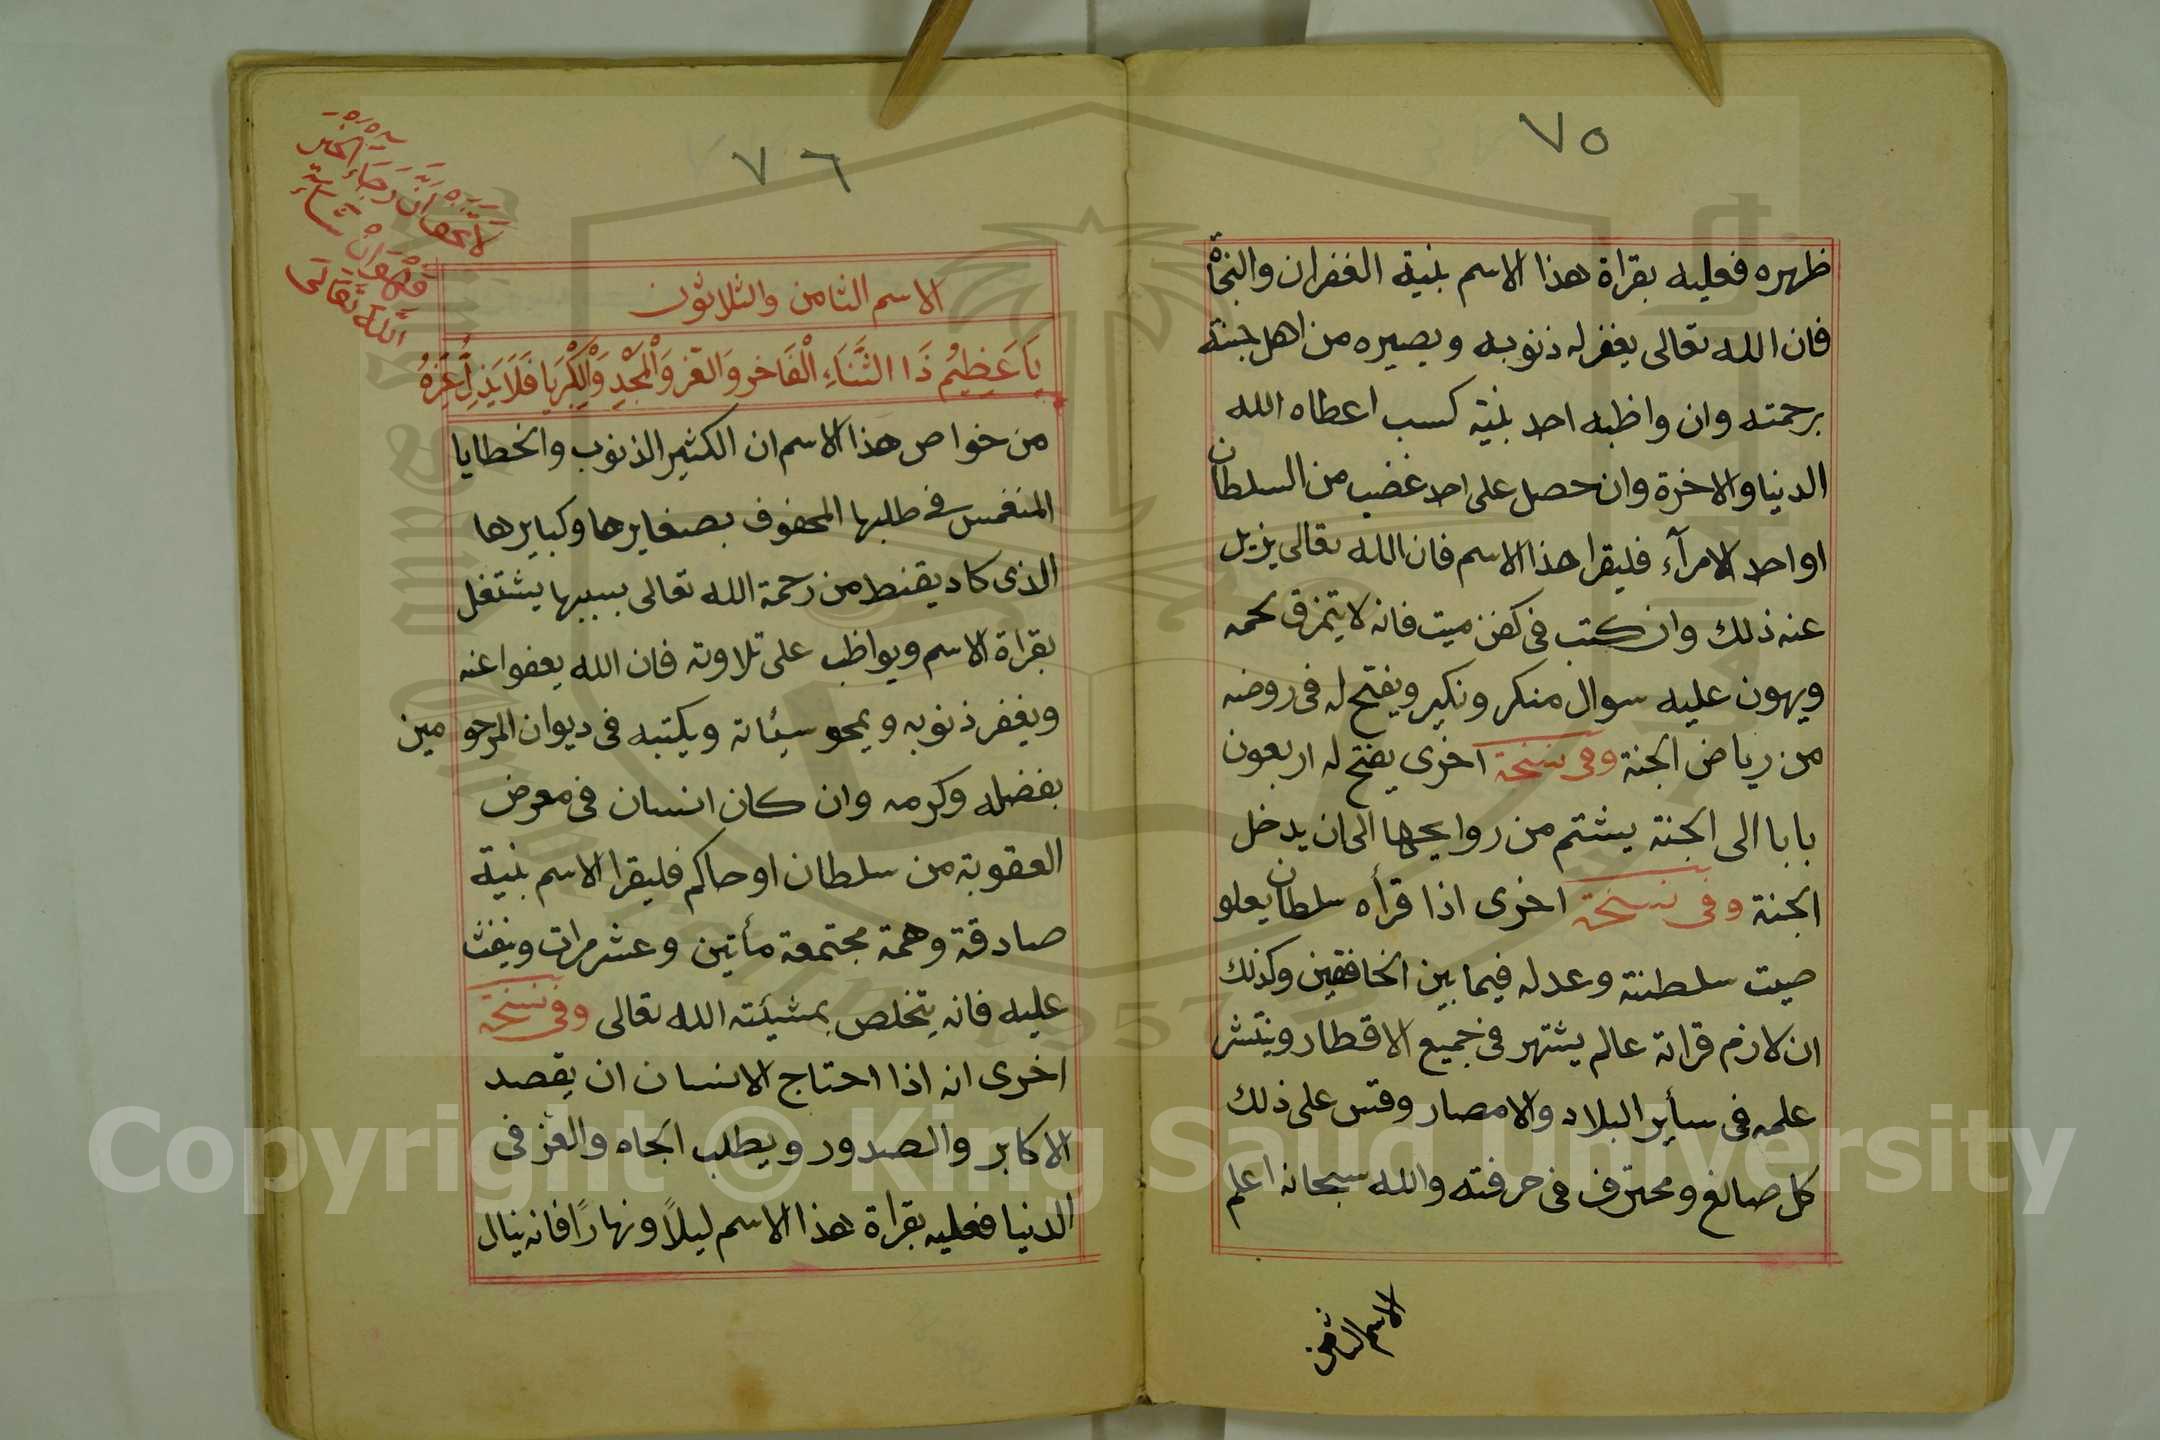 ٧٥
ظهره فعليه بقراة هذا الاسم بنية الغفران والنجاة
فان الله تعالى يغفر له ذنوبه ويصيره من اهل جنته
برحمته وان واظبه احد بنية كسب اعطاه الله
الدنيا والاخرة وان حصل على احد غضب من السلطان
او احد الامرآء فليقرا هذا الاسم فان الله تعالى يزيل
عنه ذلك وان كتب فى كفن ميت فانه لا يتمزق لحمه
ويهون عليه سوال منكر ونكير ويفتح له فى روضه
من رياض الجنة وفى نسخة اخرى يفتح له اربعون
بابا الى الجنة يشتم من روايحها الى ان يدخل
الجنة وفى نسخة اخرى اذا قرأه سلطان يعلو
صيت سلطنته وعدله فيما بين الخافقين وكذلك
ان لازم قراته عالم يشتهر فى جميع الاقطار وينتشر
علمه فى سأير البلاد والامصار وقس على ذلك
كل صالغ ومحترف فى حرفته والله سبحانه اعلم
الاسم الثامن
٧٦
الاسم الثامن والثلاثون
يَا عَظِيمُ ذَا الثَّنَاءِ الْفَاخِرِ وَالعِّزِ وَالْمَجْدِ وَالْكِبْرِيَا فَلَا يَذِلُّ عِزُّهُ
من خواص هذا الاسم ان الكثير الذنوب والخطايا
المنغمس فى طلبها المحفوف بصغايرها وكبايرها
الذى كاد يقنط من رحمة الله تعالى بسببها يشتغل
بقراة الاسم ويواظب على تلاوته فان الله يعفوا عنه
ويغفر ذنوبه ويمحو سيئاته ويكتبه فى ديوان المرحومين
بفضله وكرمه وان كان انسان فى معرض
العقوبة من سلطان او حاكم فليقرا الاسم بنية
صادقة وهمة مجتمعة مأتين وعشر مرات وينفث
عليه فانه يتخلص بمشيئته الله تعالى وفى نسخة
اخرى انه اذا احتاج الانسان ان يقصد
الاكابر والصدور ويطلب الجاه والعز فى
الدنيا فعليه بقراة هذا الاسم ليلاً ونهارًا فانه ينال
الله تعالى
Copyright © King Saud University
1957